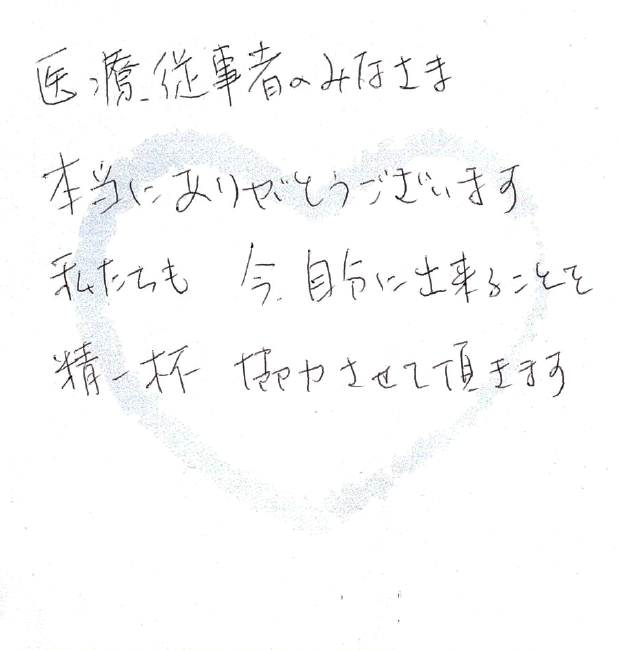 医療従事者のみなさま
本当にありがとうございます
私たちも 今、自分に出来ることを
精一杯 協力させて頂きます